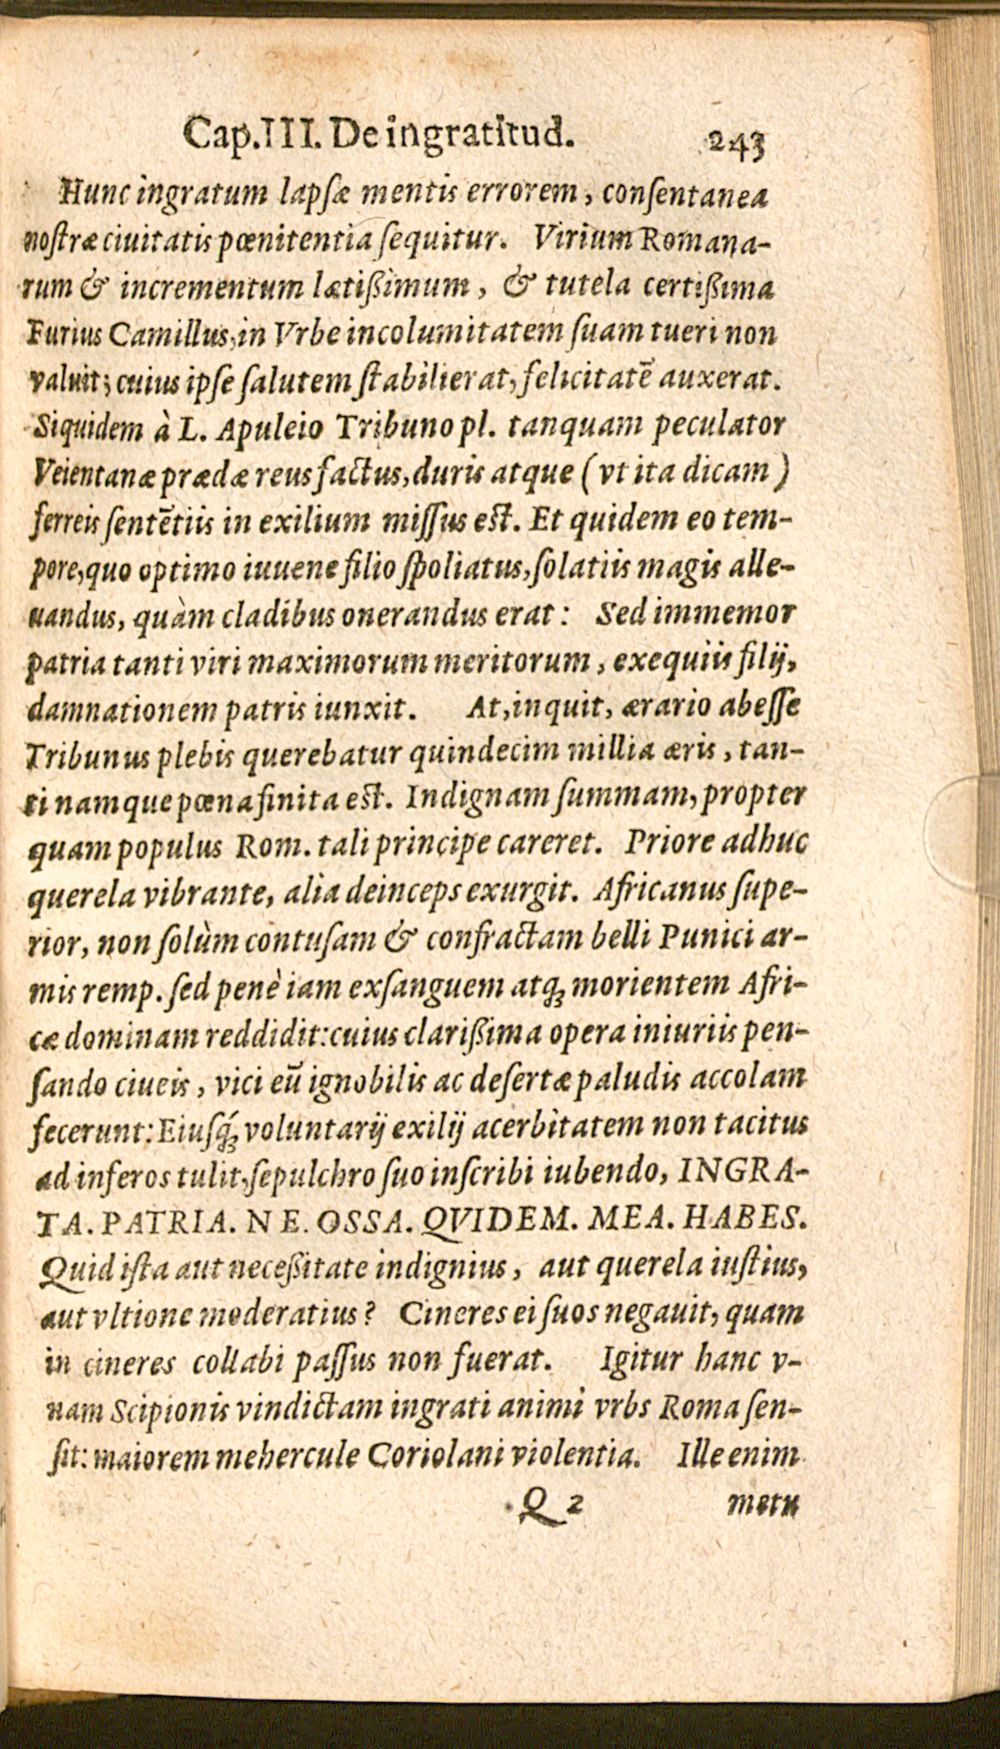 Cap. III. De ingratitud. 243
Hunc ingratum lapſæ mentis errorem, conſentanea
noſtræ ciuitatis pœnitentia ſequitur. Virium Romana-
rum & incrementum lætißimum, & tutela certißima
Furius Camillus, in Vrbe incolumitatem ſuam tueri non
valuit; cuius ipſe ſalutem ſtabilierat, felicitatē auxerat.
Siquidem à L. Apuleio Tribuno pl. tanquam peculator
Veientanæ prædæ reus factus, duris atque (vt ita dicam)
ferreis ſentētiis in exilium miſſus eſt. Et quidem eo tem-
pore, quo optimo iuuene filio ſpoliatus, ſolatiis magis alle-
uandus, quàm cladibus onerandus erat: Sed immemor
patria tanti viri maximorum meritorum, exequiis filij,
damnationem patris iunxit. At, inquit, ærario abeſſe
Tribunus plebis querebatur quindecim millia æris, tan-
ti namque pœna finita eſt. Indignam ſummam, propter
quam populus Rom. tali principe careret. Priore adhuc
querela vibrante, alia deinceps exurgit. Africanus ſupe-
rior, non ſolùm contuſam & confractam belli Punici ar-
mis remp. ſed penè iam exſanguem atq; morientem Afri-
cæ dominam reddidit: cuius clarißima opera iniuriis pen-
ſando ciueis, vici eū ignobilis ac deſertæ paludis accolam
fecerunt: Eiuſq́; voluntarij exilij acerbitatem non tacitus
ad inferos tulit, ſepulchro ſuo inſcribi iubendo, INGRA-
TA. PATRIA. NE. OSSA. QVIDEM. MEA. HABES.
Quid iſta aut neceßitate indignius, aut querela iuſtius,
aut vltione moderatius? Cineres ei ſuos negauit, quam
in cineres collabi paſſus non fuerat. Igitur hanc v-
nam Scipionis vindictam ingrati animi vrbs Roma ſen-
ſit: maiorem mehercule Coriolani violentia. Ille enim
Q 2 metu